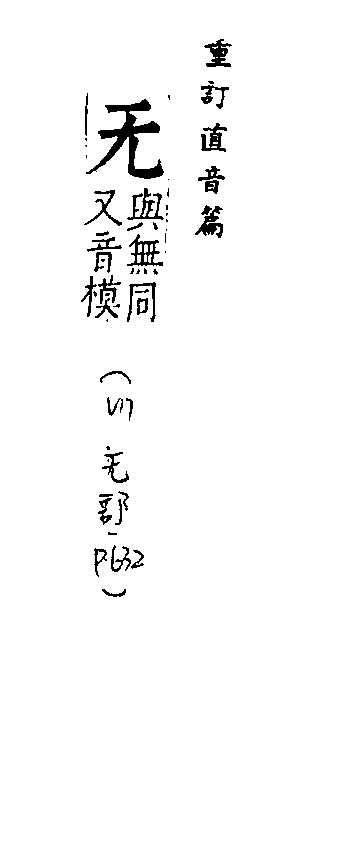 重訂直音篇
无
與無同
又音模
(VII 无部-P.632)